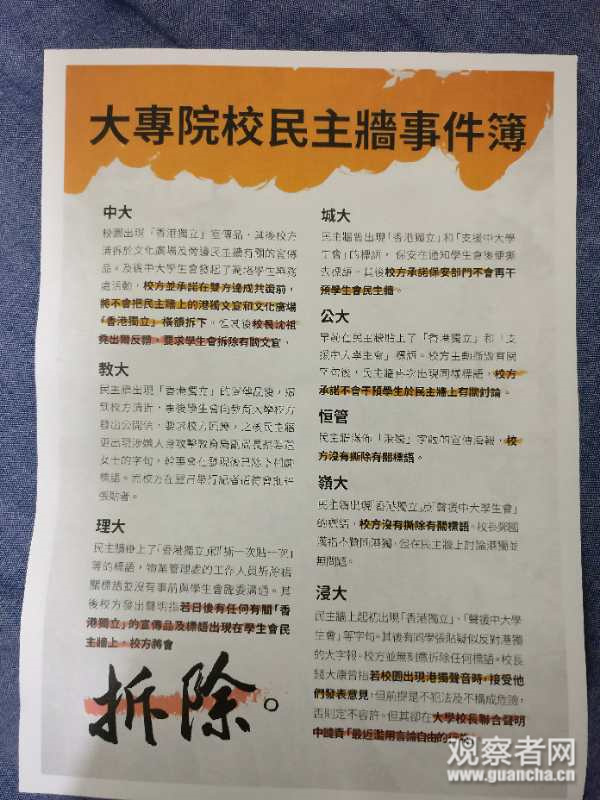 大專院校民主牆事件簿
中大
校園出現「香港獨立」宣傳品，其後校方
清拆於文化廣場及旁邊民主牆有關的宣傳
品。及後中大學生會發起了
處活動，校方並承諾在雙方達成共識前，
將不會把民主牆上的港獨文宣和文化廣場
「香港獨立」橫額拆下。但其後校長沈祖
堯出爾反爾，要求學生會拆除有關文宣。
教大
民主牆出現「香港獨立」的宣傳品後，
到校方清拆，事後學生會向教育大學校方
發出公開信，要求校方回應，之後民主牆
更出現涉嫌人身攻擊教育局副局長蔡若蓮
女士的字句，幹事會在發現後已除下相關
標語。而校方在翌日舉行記者招待會批評
張貼者。
理大
民主牆掛上了「香港獨立」和「撕一次貼一次」
等的標語，物業管理處的工作人員拆除相
關標語並沒有事前與學生會職委溝通。其
後校方發出聲明指若日後有任何有關「香
港獨立」的宣傳品及標語出現在學生會民
主牆上，校方將會
拆除。
城大
民主牆曾出現「香港獨立」和「支援中大學
生會」的標語，保安在通知學生會後便撕
去標語。其後校方承諾保安部門不會再干
預學生會民主牆。
公大
早前在民主牆貼上了「香港獨立」和「支
援中大學生會」標語。校方主動撕毀有關
字句後，民主牆再次出現同樣標語，校方
承諾不會干預學生於民主牆上有關討論。
恒管
民主牆滿佈「港獨」字眼的宣傳海報，校
方沒有撕除有關標語。
嶺大
民主牆出現「香港獨立」及「聲援中大學生會」
的標語，校方沒有撕除有關標語。校長鄭國
漢指不贊同港獨，但在民主牆上討論港獨並
無問題。
浸大
民主牆上起初出現「香港獨立」、「聲援中大學
生會」等字句。其後有同學張貼疑似反對港獨
的大字報。校方並無刻意拆除任何標語。校長
錢大康曾指若校園出現港獨聲音時，接受他
們發表意見，但前提是不犯法及不構成危險，
否則定不容許。但其卻在大學校長聯合聲明
中譴責「最近濫用言論自由的行為」
观察者网
www.guancha.cn